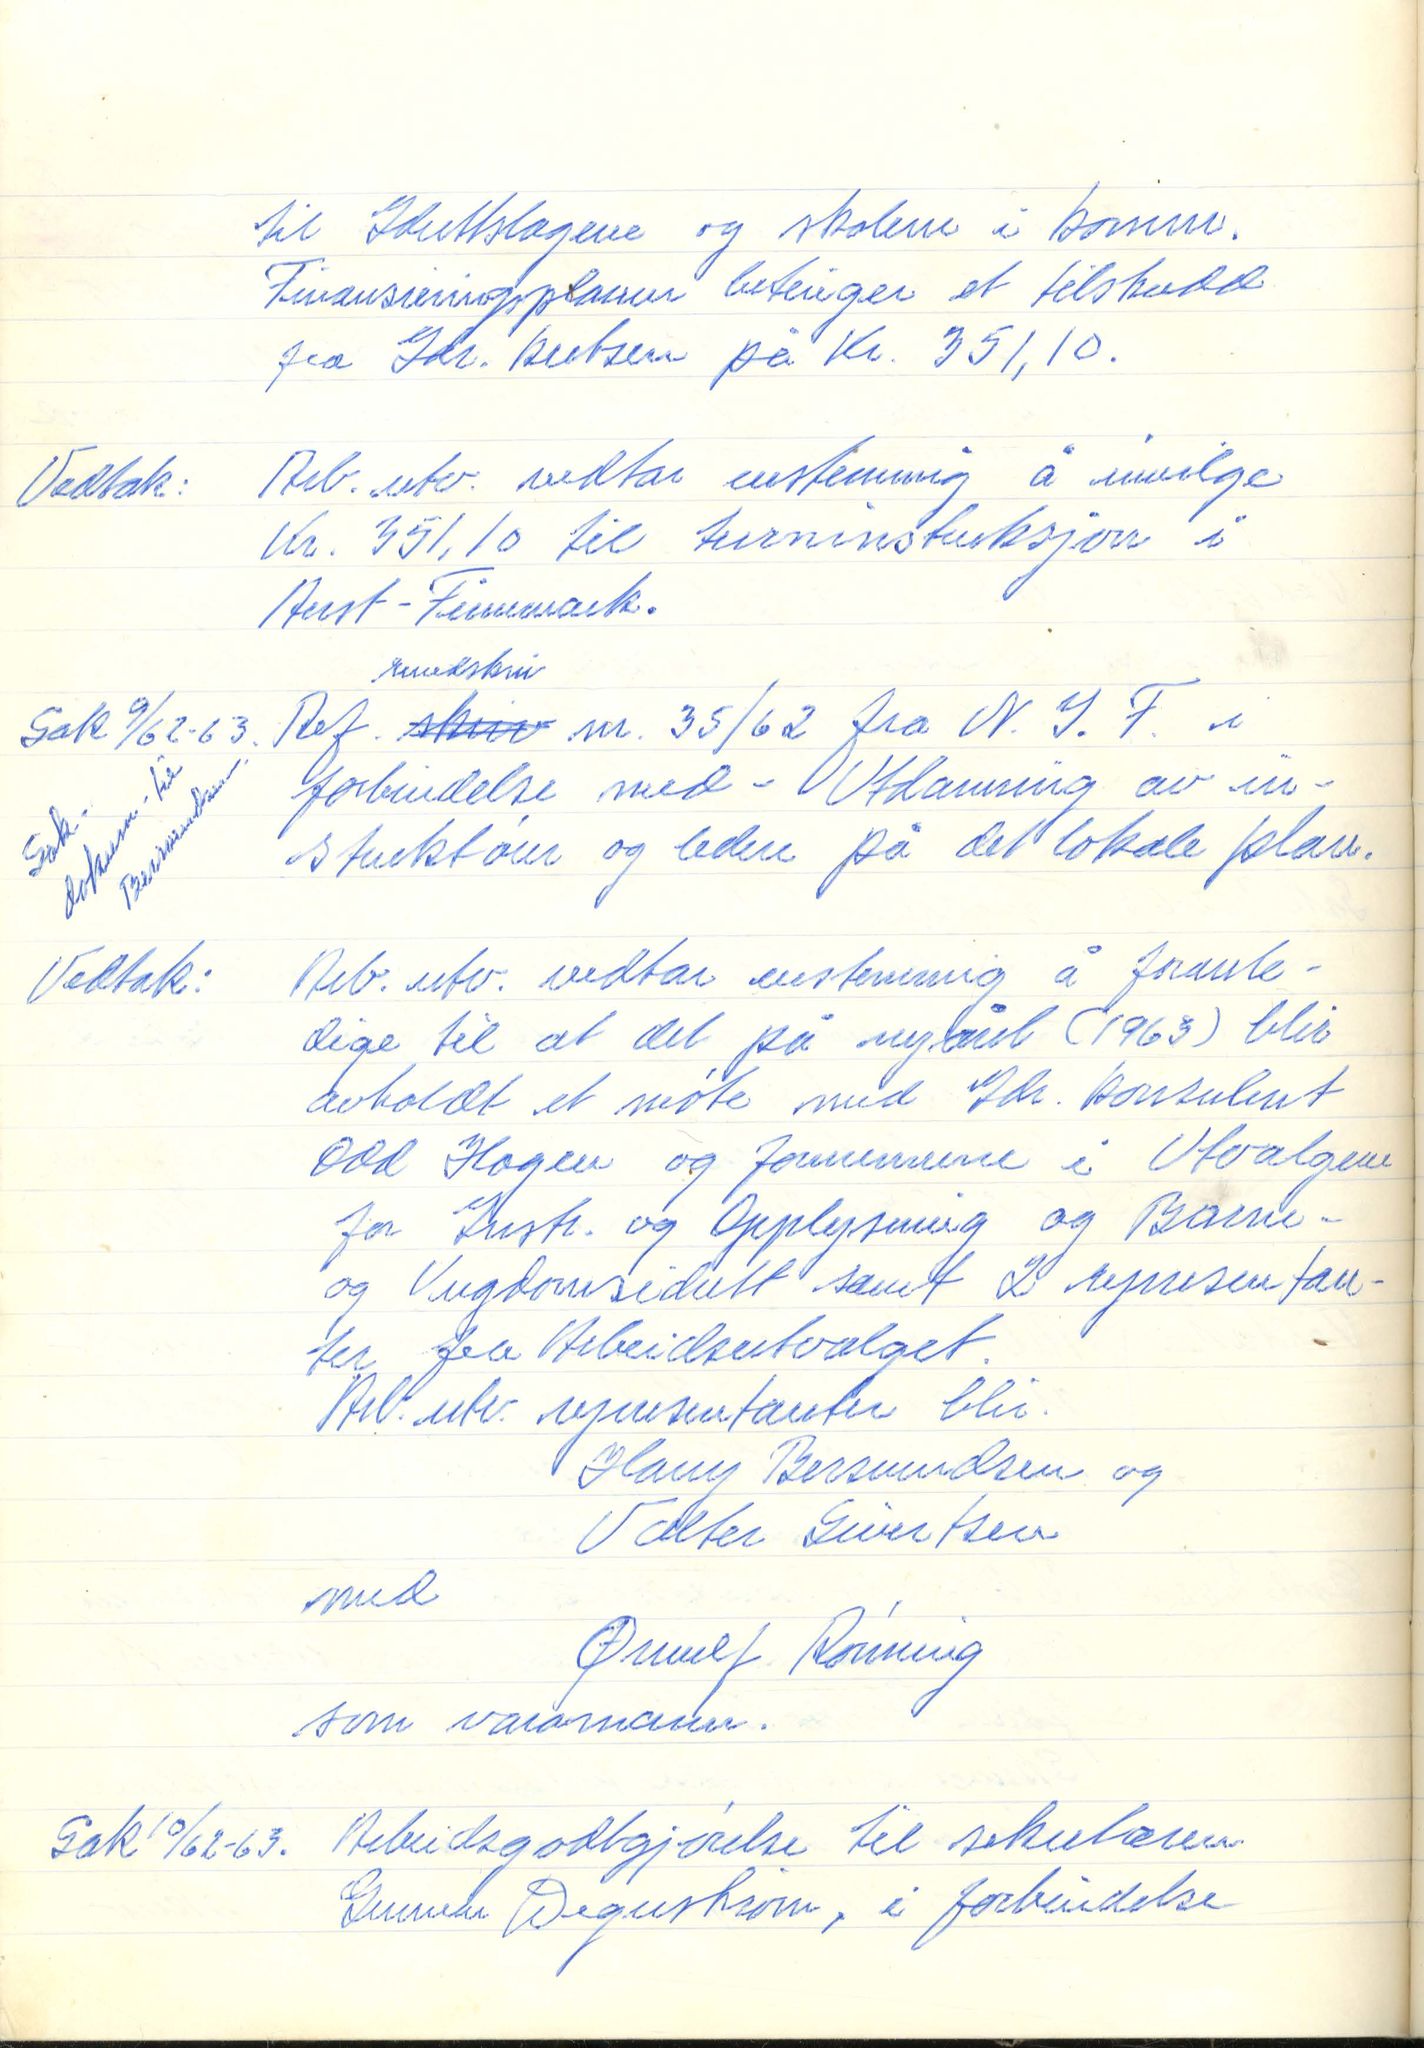 til Idrettslagene og skolene i komm.
Finansieringsplanen betinger et tilskudd
fra Idr. kretsen på Kr. 351,10.
Vedtak: Arb. utv. vedtar enstemmig å innvilge
Kr. 351,10 til turninstruksjon i
Aust-Finnmark.
rundskriv
Sak 9/62-63. Ref. skriv nr. 35/62 fra N. I. F. i
forbindelse med - Utdanning av in-
struktører og ledere på det lokale plan.
Sak-
dokum. til
Bersvendsen.
Vedtak: Arb. utv. vedtar enstemmig å foranle-
dige til at det på nyåret (1963) blir
avholdt et møte med Idr. konsulent
Odd Hagen og formennene i Utvalgene
for Instr. og Opplysning og Barne-
og Ungdomsidrett samt 2 represen tan-
ter fra Arbeidsutvalget.
Arb. utv. representanter blir.
Harry Bersvendsen og
Valter Sivertsen
med
Ørnulf Rønning
som varamann.
Sak 10/62-63. Arbeidsgodtgjørelse til sekretæren
Gunnar Wegnström, i forbindelse